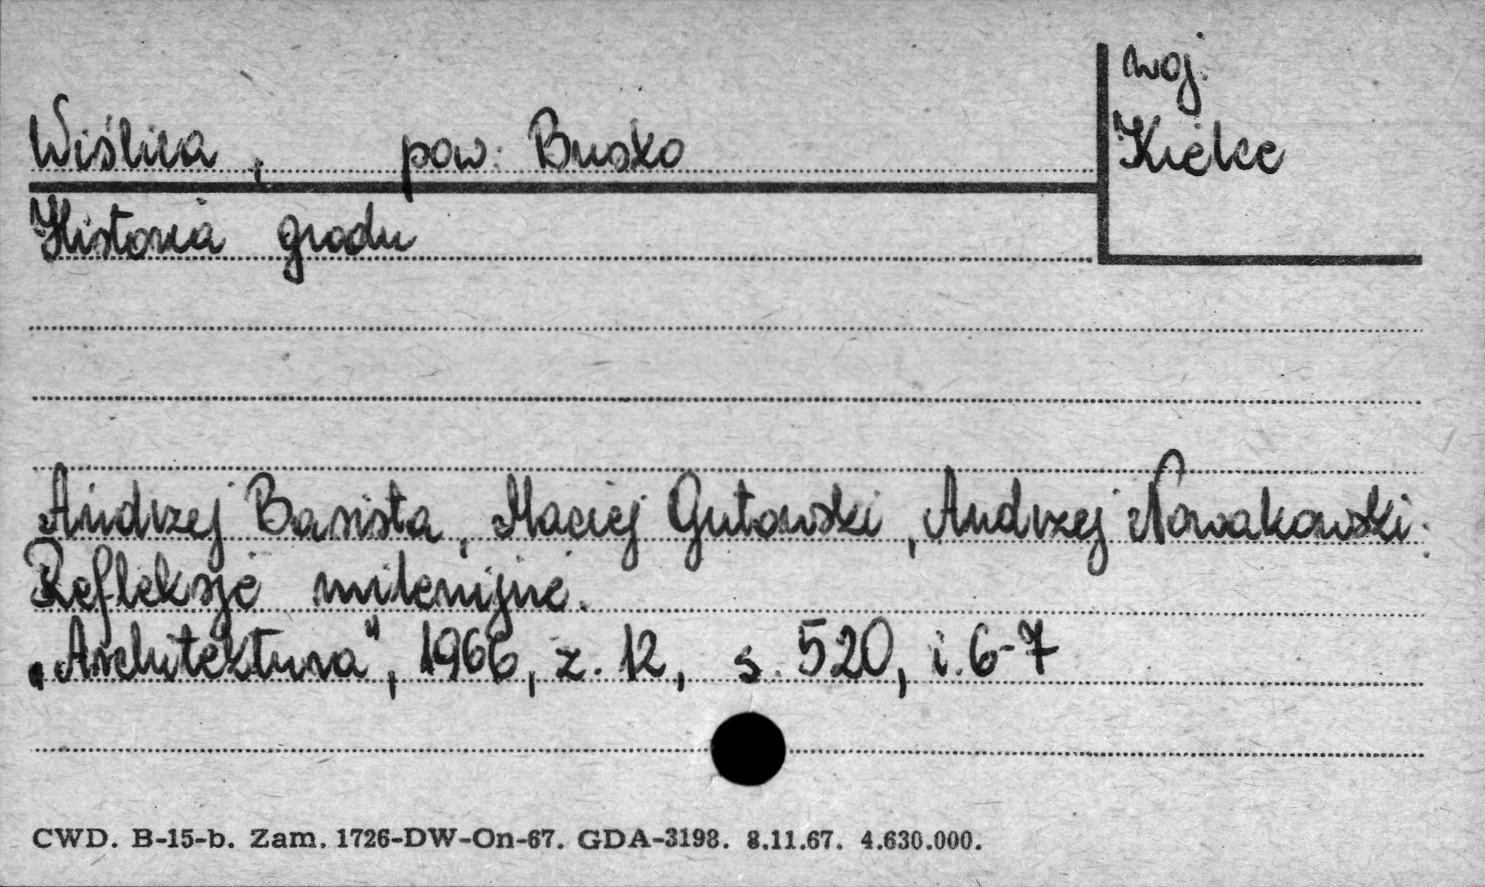 woj.
Kielce
Wiślica, pow. Busko
Historia grodu
Andrzej Basista, Maciej Gutowski, Andrzej Nowakowski:
Refleksje milenijne.
„Architektura", 1966, z. 12, s. 520, i. 6-7
CWD. B-15-b. Zam. 1726-DW-On-67. GDA-3198. 8.11.67. 4.630.000.